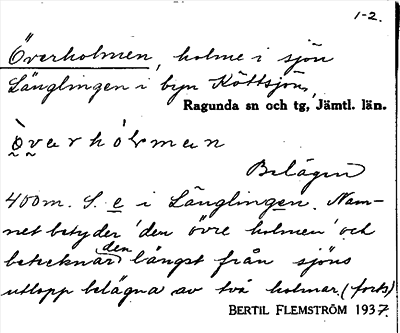 1-2.
Överholmen, holme i sjön
Länglingen i byn Köttsjön,
Ragunda sn och tg, Jämtl. län.
Belägen
400 m. S. e i Länglingen. Nam-
net betyder 'den övre holmen' och
betecknar den längst från sjöns
utlopp belägna av två holmar. (forts)
BERTIL FLEMSTRÖM 1937.